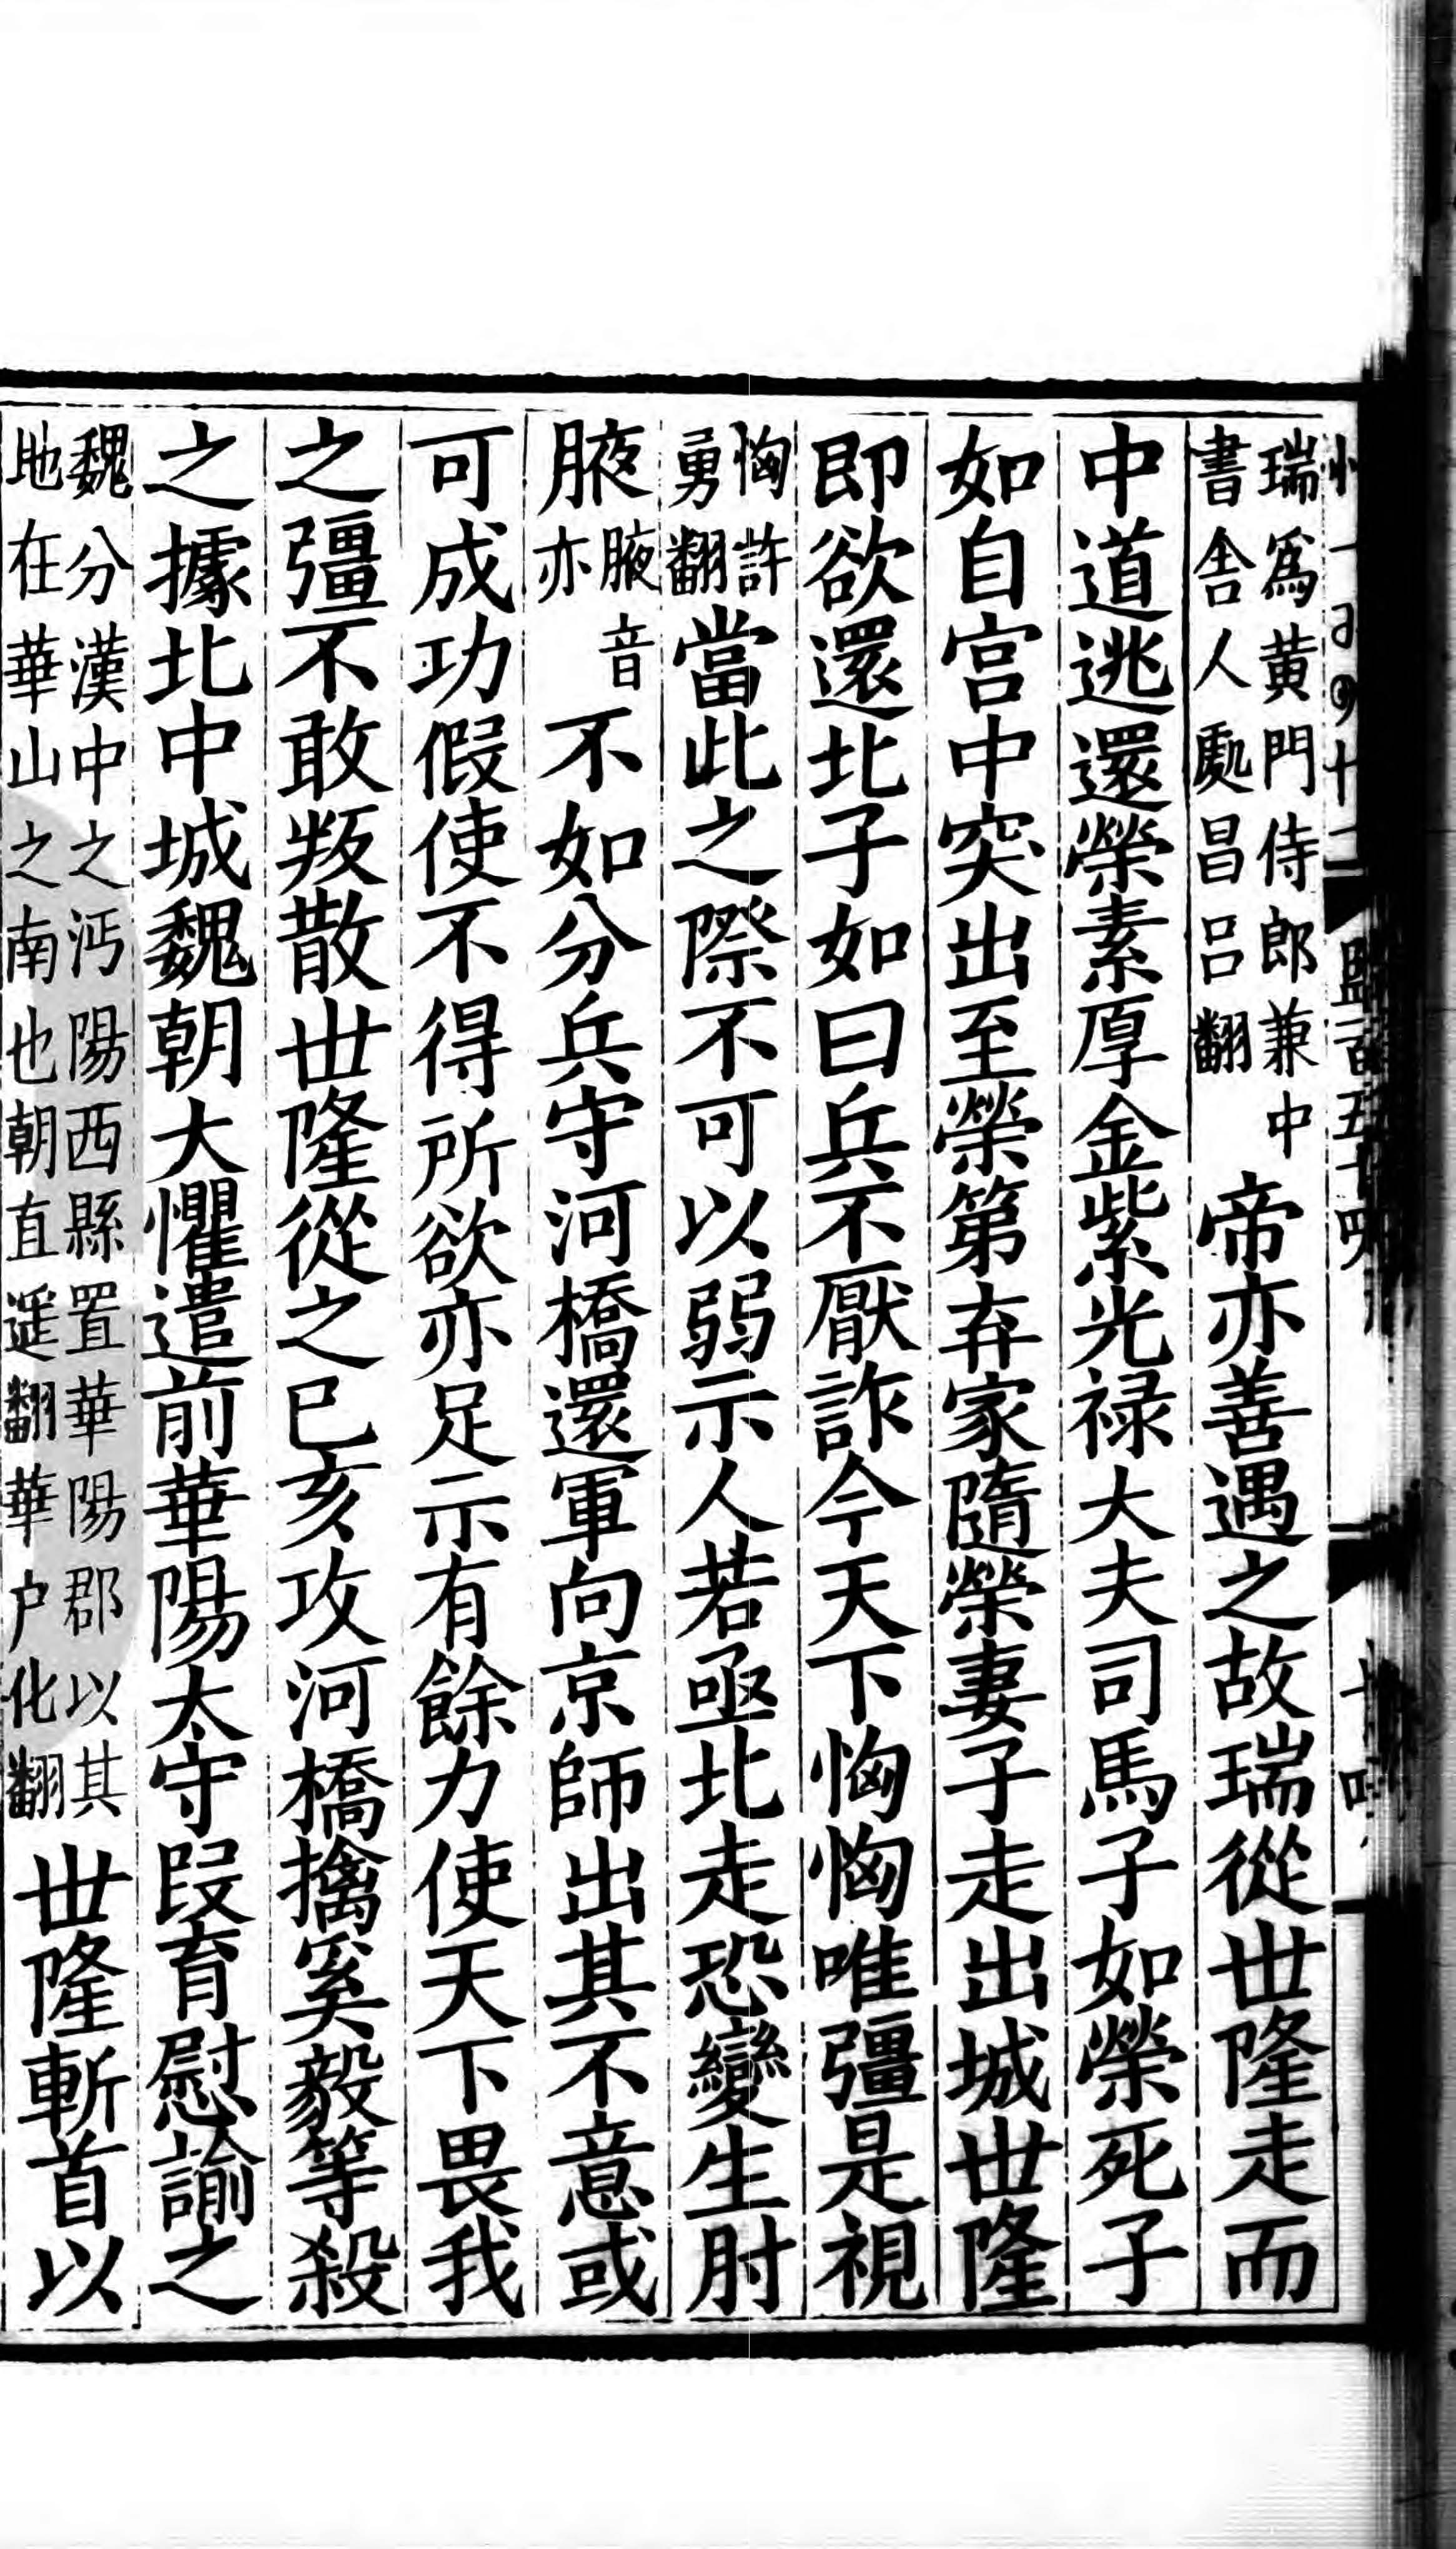 瑞爲黄門侍郎兼中書舍人䖏昌吕翻帝亦善遇之故瑞從世隆走而
中道逃還榮素厚金紫光禄大夫司馬子如榮死子
如自宫中突出至榮第弃家隨榮妻子走出城世隆
即欲還北子如曰兵不厭詐今天下恟恟唯彊是視
恟許勇翻當此之際不可以弱示人若亟北走恐變生肘
腋腋音亦不如分兵守河橋還軍向京師出其不意或
可成功假使不得所欲亦足示有餘力使天下畏我
之彊不敢叛散世隆從之已亥攻河橋擒奚毅等殺
之據北中城魏朝大懼遣前華陽太守段育慰諭之
魏分漢中之沔陽西縣置華陽郡以其地在華山之南也朝直遥翻華户化翻世隆斬首以